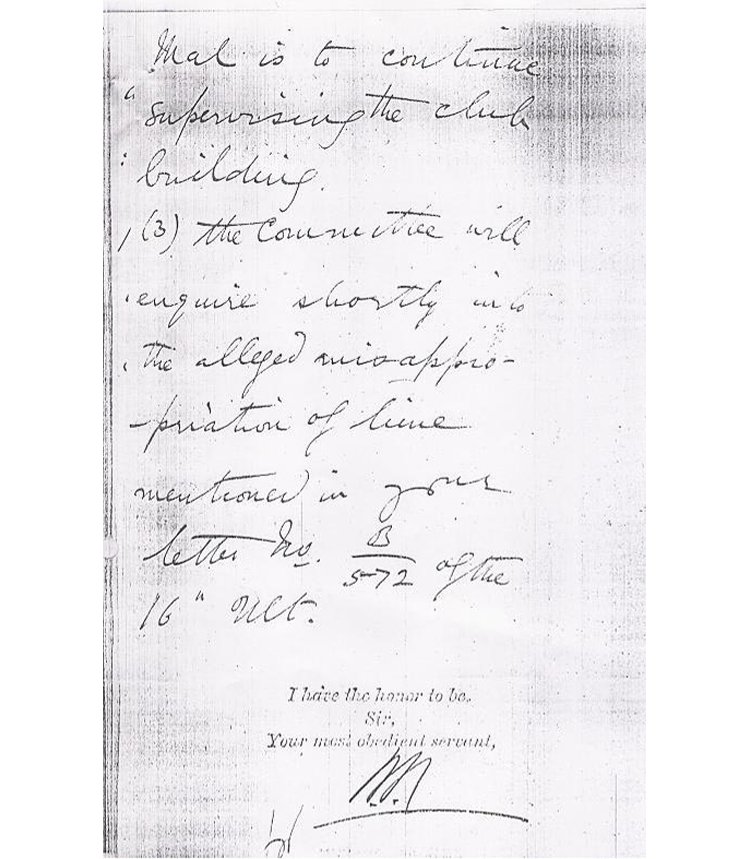 Mal is to continue
supervising the club
building.
(3) the Committee will
enquire shortly into
the alleged misappro-
-priation of lime
mentioned in your
letter No. B/572 of the
16" Ult.
I have the honor to be,
Sir,
Your most obedient servant,